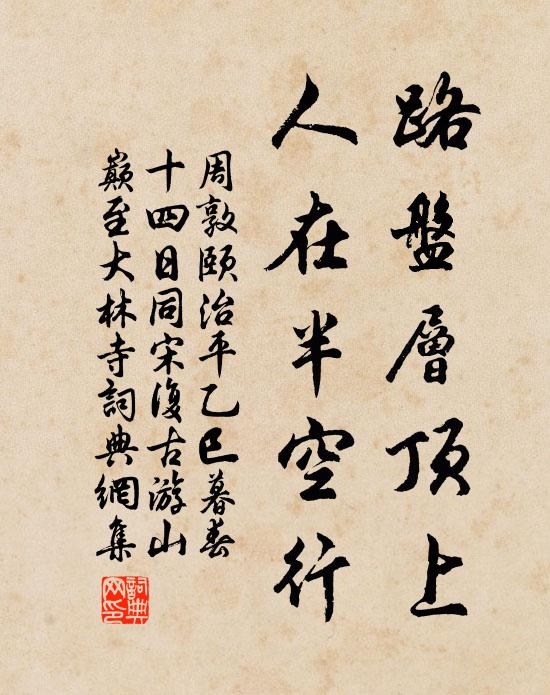 路盤層頂上
人在半空行
周敦頤治平乙巳暮春
十四日同宋復古游山
巔至大林寺詞典網集
詞典
网印